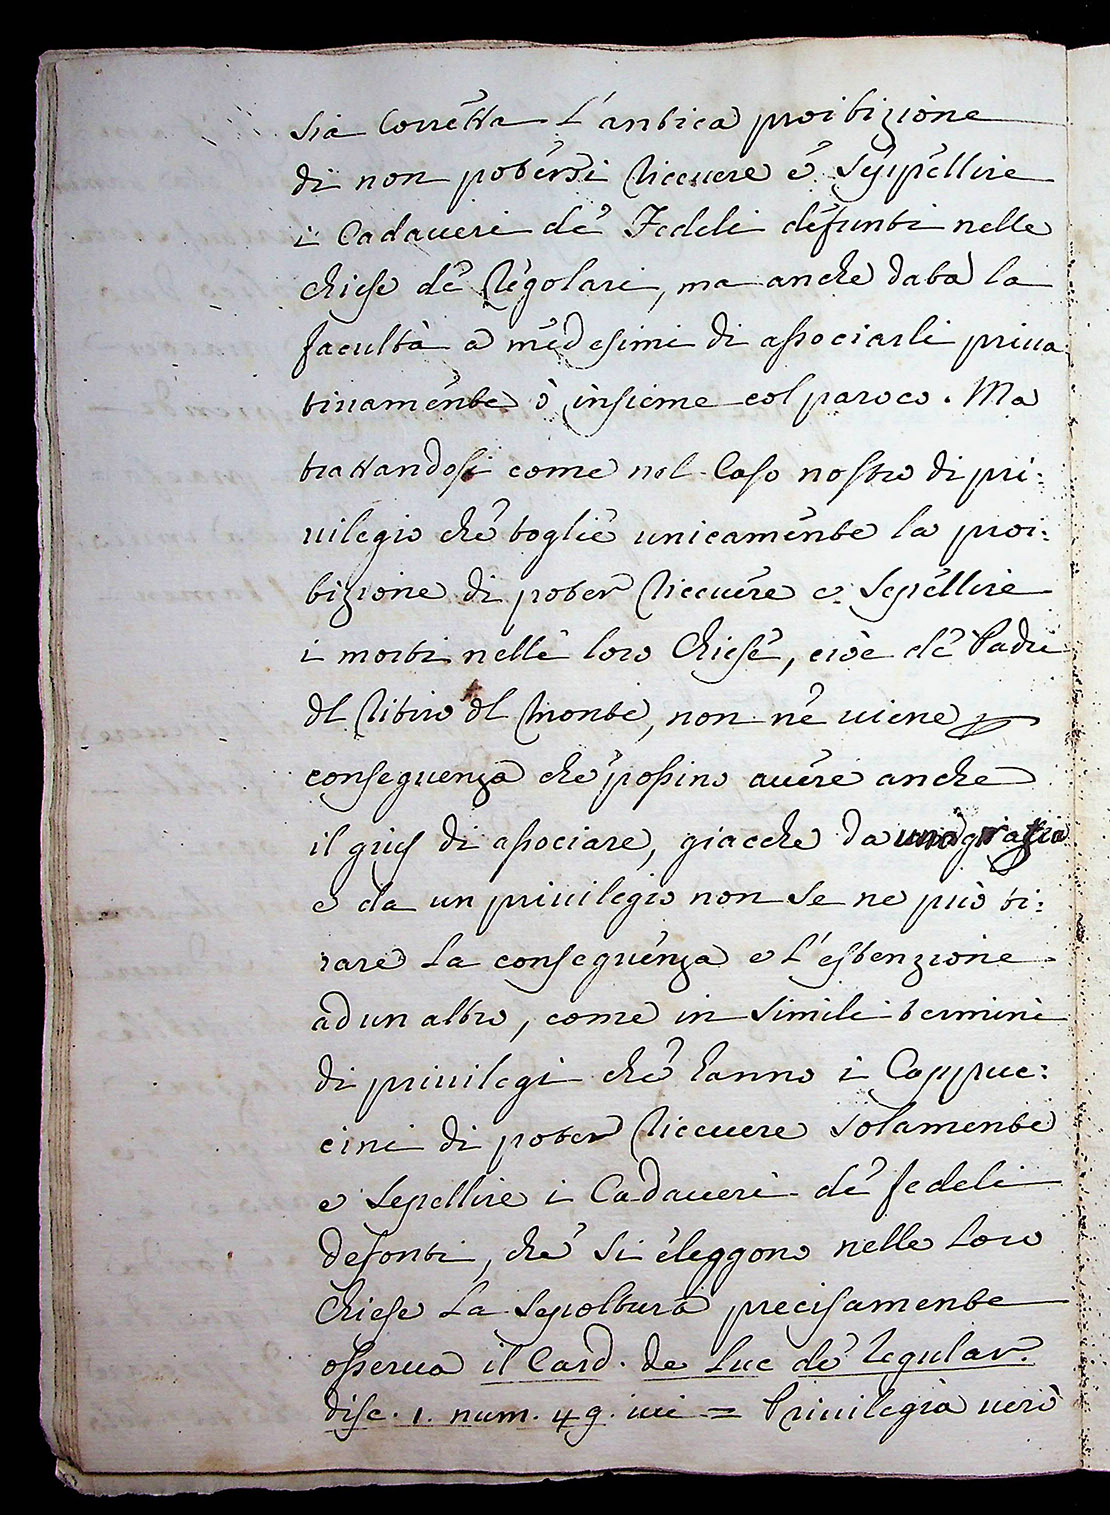 sia Corretta L'antica proibizione
di non potersi Riceuere e Seppellire
i Cadaueri de Fedeli defunti nelle
chiese de Regolari, ma anche data la
facultà a medesimi di associarli priua
tiuamente ò insieme col paroco. Ma
trattandosi come nel Caso nostro di pri:
uilegio che toglie unicamente la proi:
bizione di poter Riceuere e Sepellire
i morti nelle loro Chiese, cioè de Padri
dl Ritiro dl Monte, non ne uiene p
conseguenza che possino auere anche
il gius di associare, giacche da una grazia
e da un priuilegio non se ne può ti:
rare La conseguenza e L'estenzione
ad un altro, come in simili termini
di priuilegi che hanno i Cappuc:
cini di poter Riceuere solamente
e Sepellire i Cadaueri de fedeli
defonti, che si eleggono nelle Loro
Chiese La Sepoltura precisamente
osserua il Card. de Luc de Regular.
disc. 1. num. 49. iui = Priuilegia uerò